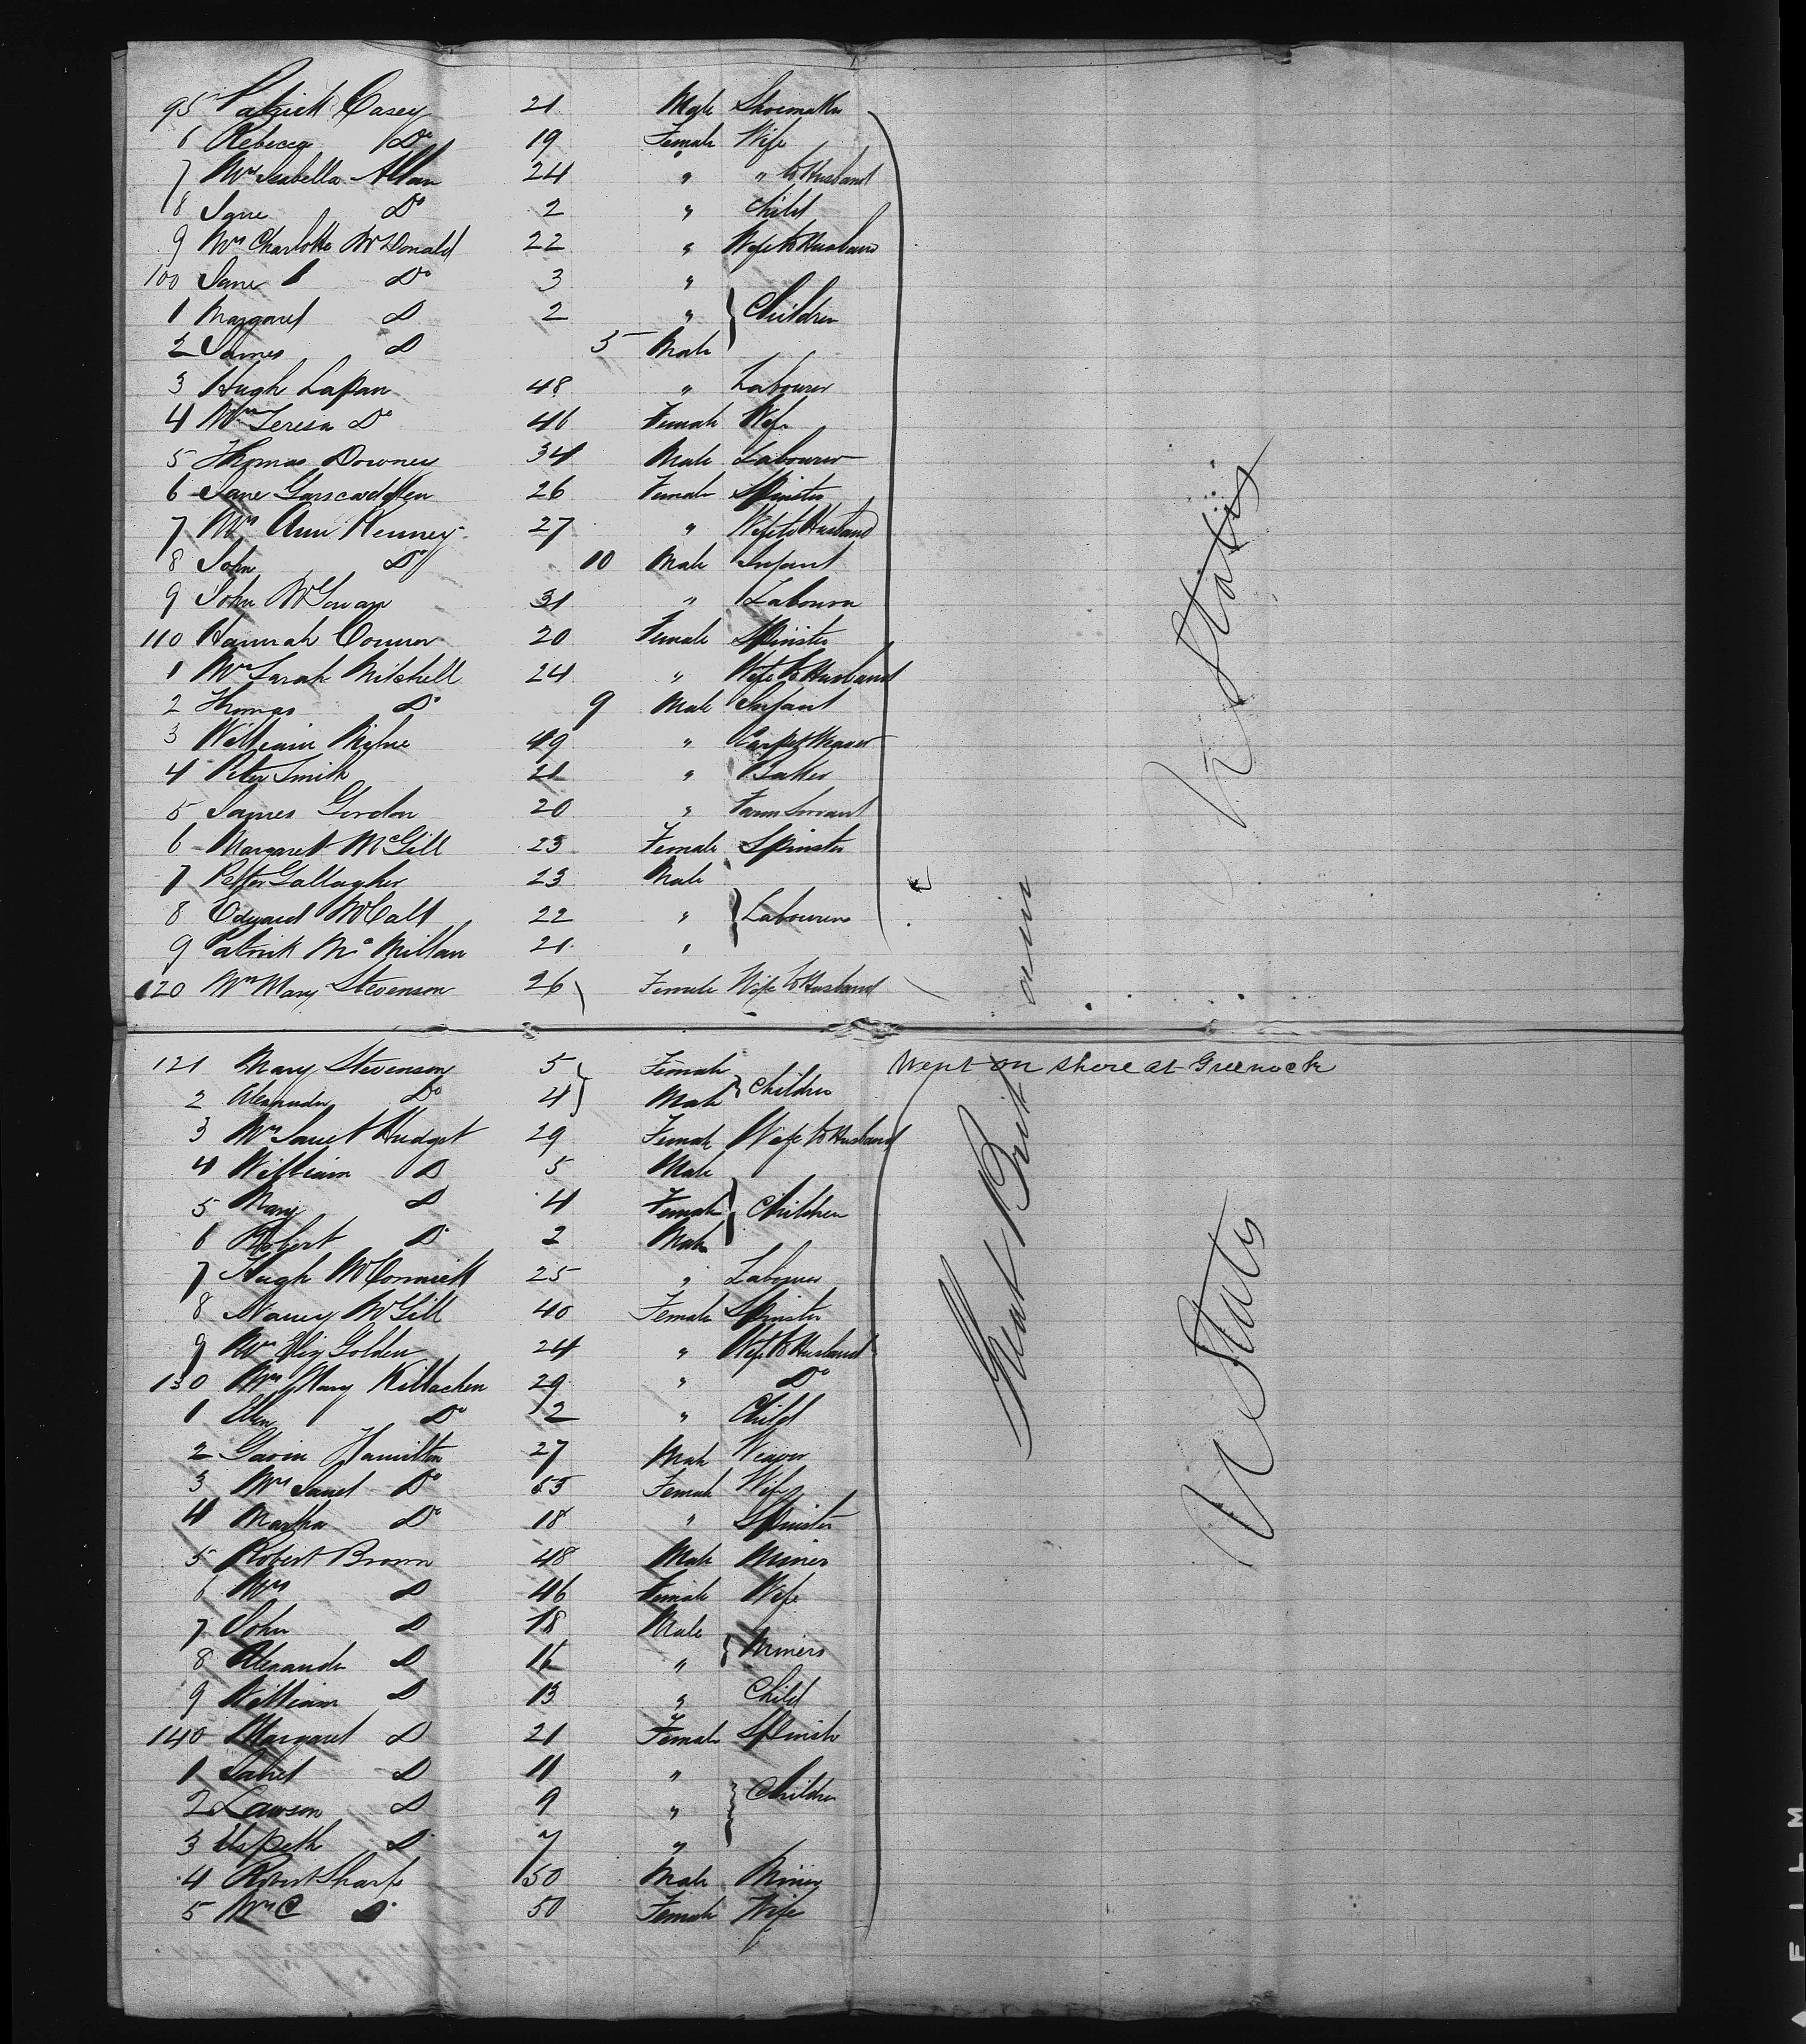 95 Patrick Casey 21 Male Shoemaker
6 Rebecca Do 19 Female Wife
7 Mrs Isabella Allan 24 " " to Husband
8 Jane Do 2 " Child
9 Mrs Charlotte McDonald 22 " Wife to Husband
100 Jane Do 3 "
1 Margaret D 2 " Children
2 James D 5 Male
3 Hugh Lappan 48 " Labourer
4 Mrs Teresa Do 46 Female Wife
5 Thomas Downey 34 Male Labourer
6 Jane 26 Female Spinster
7 Mrs Ann Kenney 27 " Wife to Husband
8 John Do 10 Male Infant
9 John McGowan 31 " Labourer
110 Hannah Connor 20 Female Spinster
1 Mrs Sarah Mitchell 24 " Wife to Husband
2 Thomas Do 9 Male Infant
3 William Milne 49 " Carpet Weaver
4 Peter Smith 21 " Baker
5 James Gordon 20 " Farm Servant
6 Margaret McGill 23 Female Spinster
7 Peter Gallagher 23 Male
8 Edward McCall 22 " Labourers
9 Patrick McMillan 21 "
120 Mrs Mary Stevenson 26 Female Wife to Husband
U States
121 Mary Stevenson 5 Female Went on shore at Greenock
2 Alexander Do 4 Male Children
3 Mrs Janet Hudget 29 Female Wife to Husband
4 William D 5 Male
5 Mary D 4 Female Children
6 Robert D 2 Male
7 Hugh McCormick 25 " Labourer
8 Nancy McGill 40 Female Spinster
9 Mrs Eliz Golden 24 " Wife to Husband
130 Mrs Mary Killachen 29 " Do
1 Ellen Do 2 " Child
2 Gavin Hamilton 27 Male Weaver
3 Mrs Janet Do 55 Female Wife
4 Martha Do 18 " Spinster
5 Robert Brown 48 Male Miner
6 Mrs D 46 Female Wife
7 John D 18 Male
8 Alexander D 16 " Miners
9 William D 13 " Child
140 Margaret D 21 Female Spinster
1 Janet D 11 "
2 Lawson D 9 " Children
3 Elspeth D 7 "
4 Robert Sharp 50 Male Miner
5 Mrs C D 50 Female Wife
Great Brit
U States
FILM